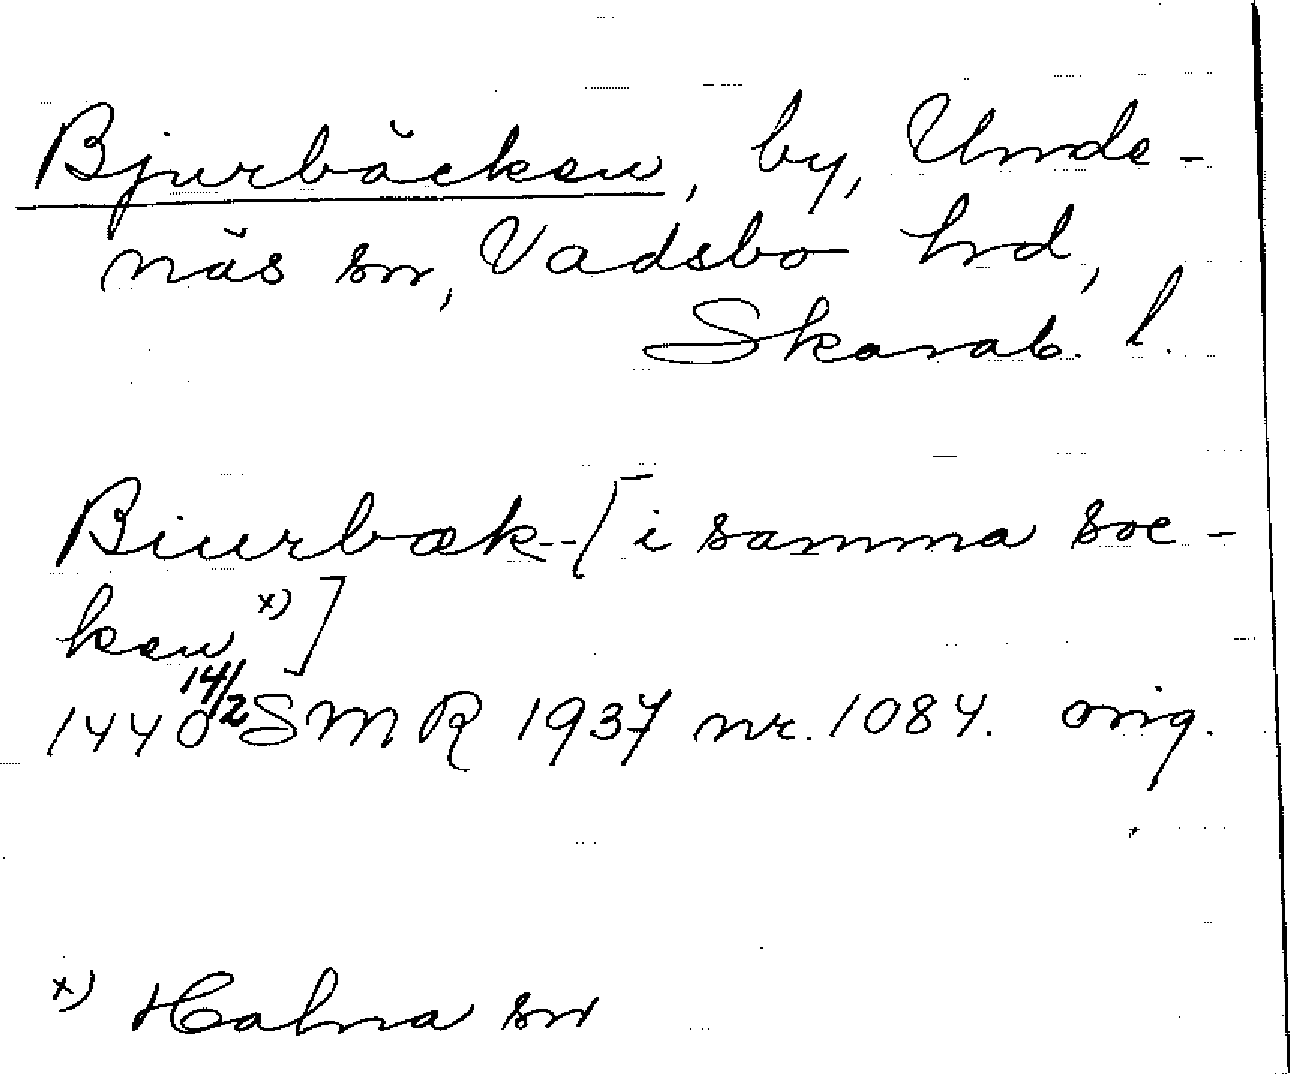 Bjurbäcken, by, Unde-
näs sn, Vadsbo hd,
Skarab. l.
Biurbæk [i samma soc-
ken x)]
1440 14/2 SMR 1937 nr. 1084. orig.
x) Halna sn